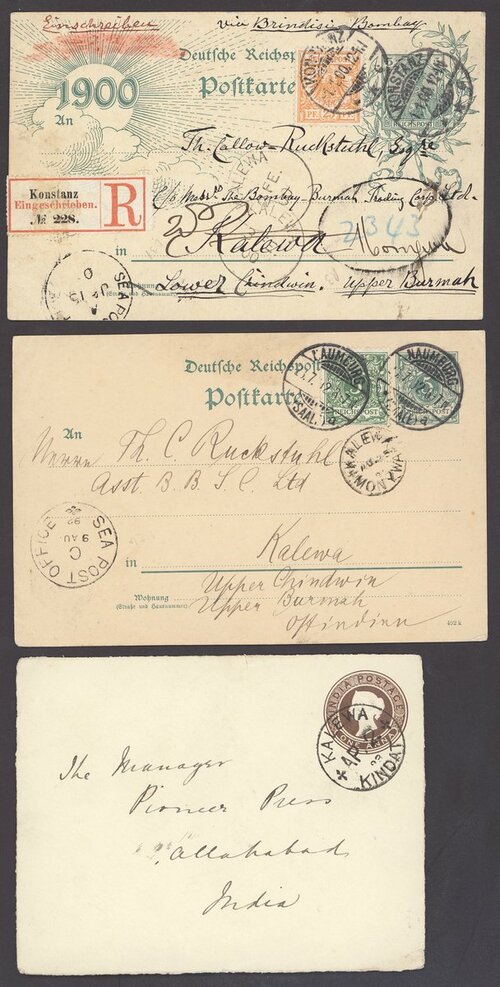 Einschreiben via Brindisi-Bombay
Deutsche Reichsp
Postkarte
1900
An
REICHSPOST
KONSTANZ
KONSTANZ
Th. Callow-Ruckstuhl, Esqre
Konstanz
Eingeschrieben.
№ 228.
R
c/o The Bombay-Burmah Trading Corp. Ltd.
KALEWA
2343
in Kalewa
Lower Chindwin, Upper Burmah
SEA POST
Deutsche Reichspost
Postkarte
NAUMBURG
(SAALE)
REICHSPOST
NAUMBURG
An
Herrn Th. C. Ruckstuhl
Asst. B B T C. Ltd
KALEWA
MONYWA
SEA POST OFFICE
C
9 AU
92
in Kalewa
Wohnung
(Straße und Hausnummer)
Upper Chindwin
Upper Burmah
Ostindien
INDIA POSTAGE
KALEWA
KINDAT
The Manager
Pioneer Press
Allahabad
India